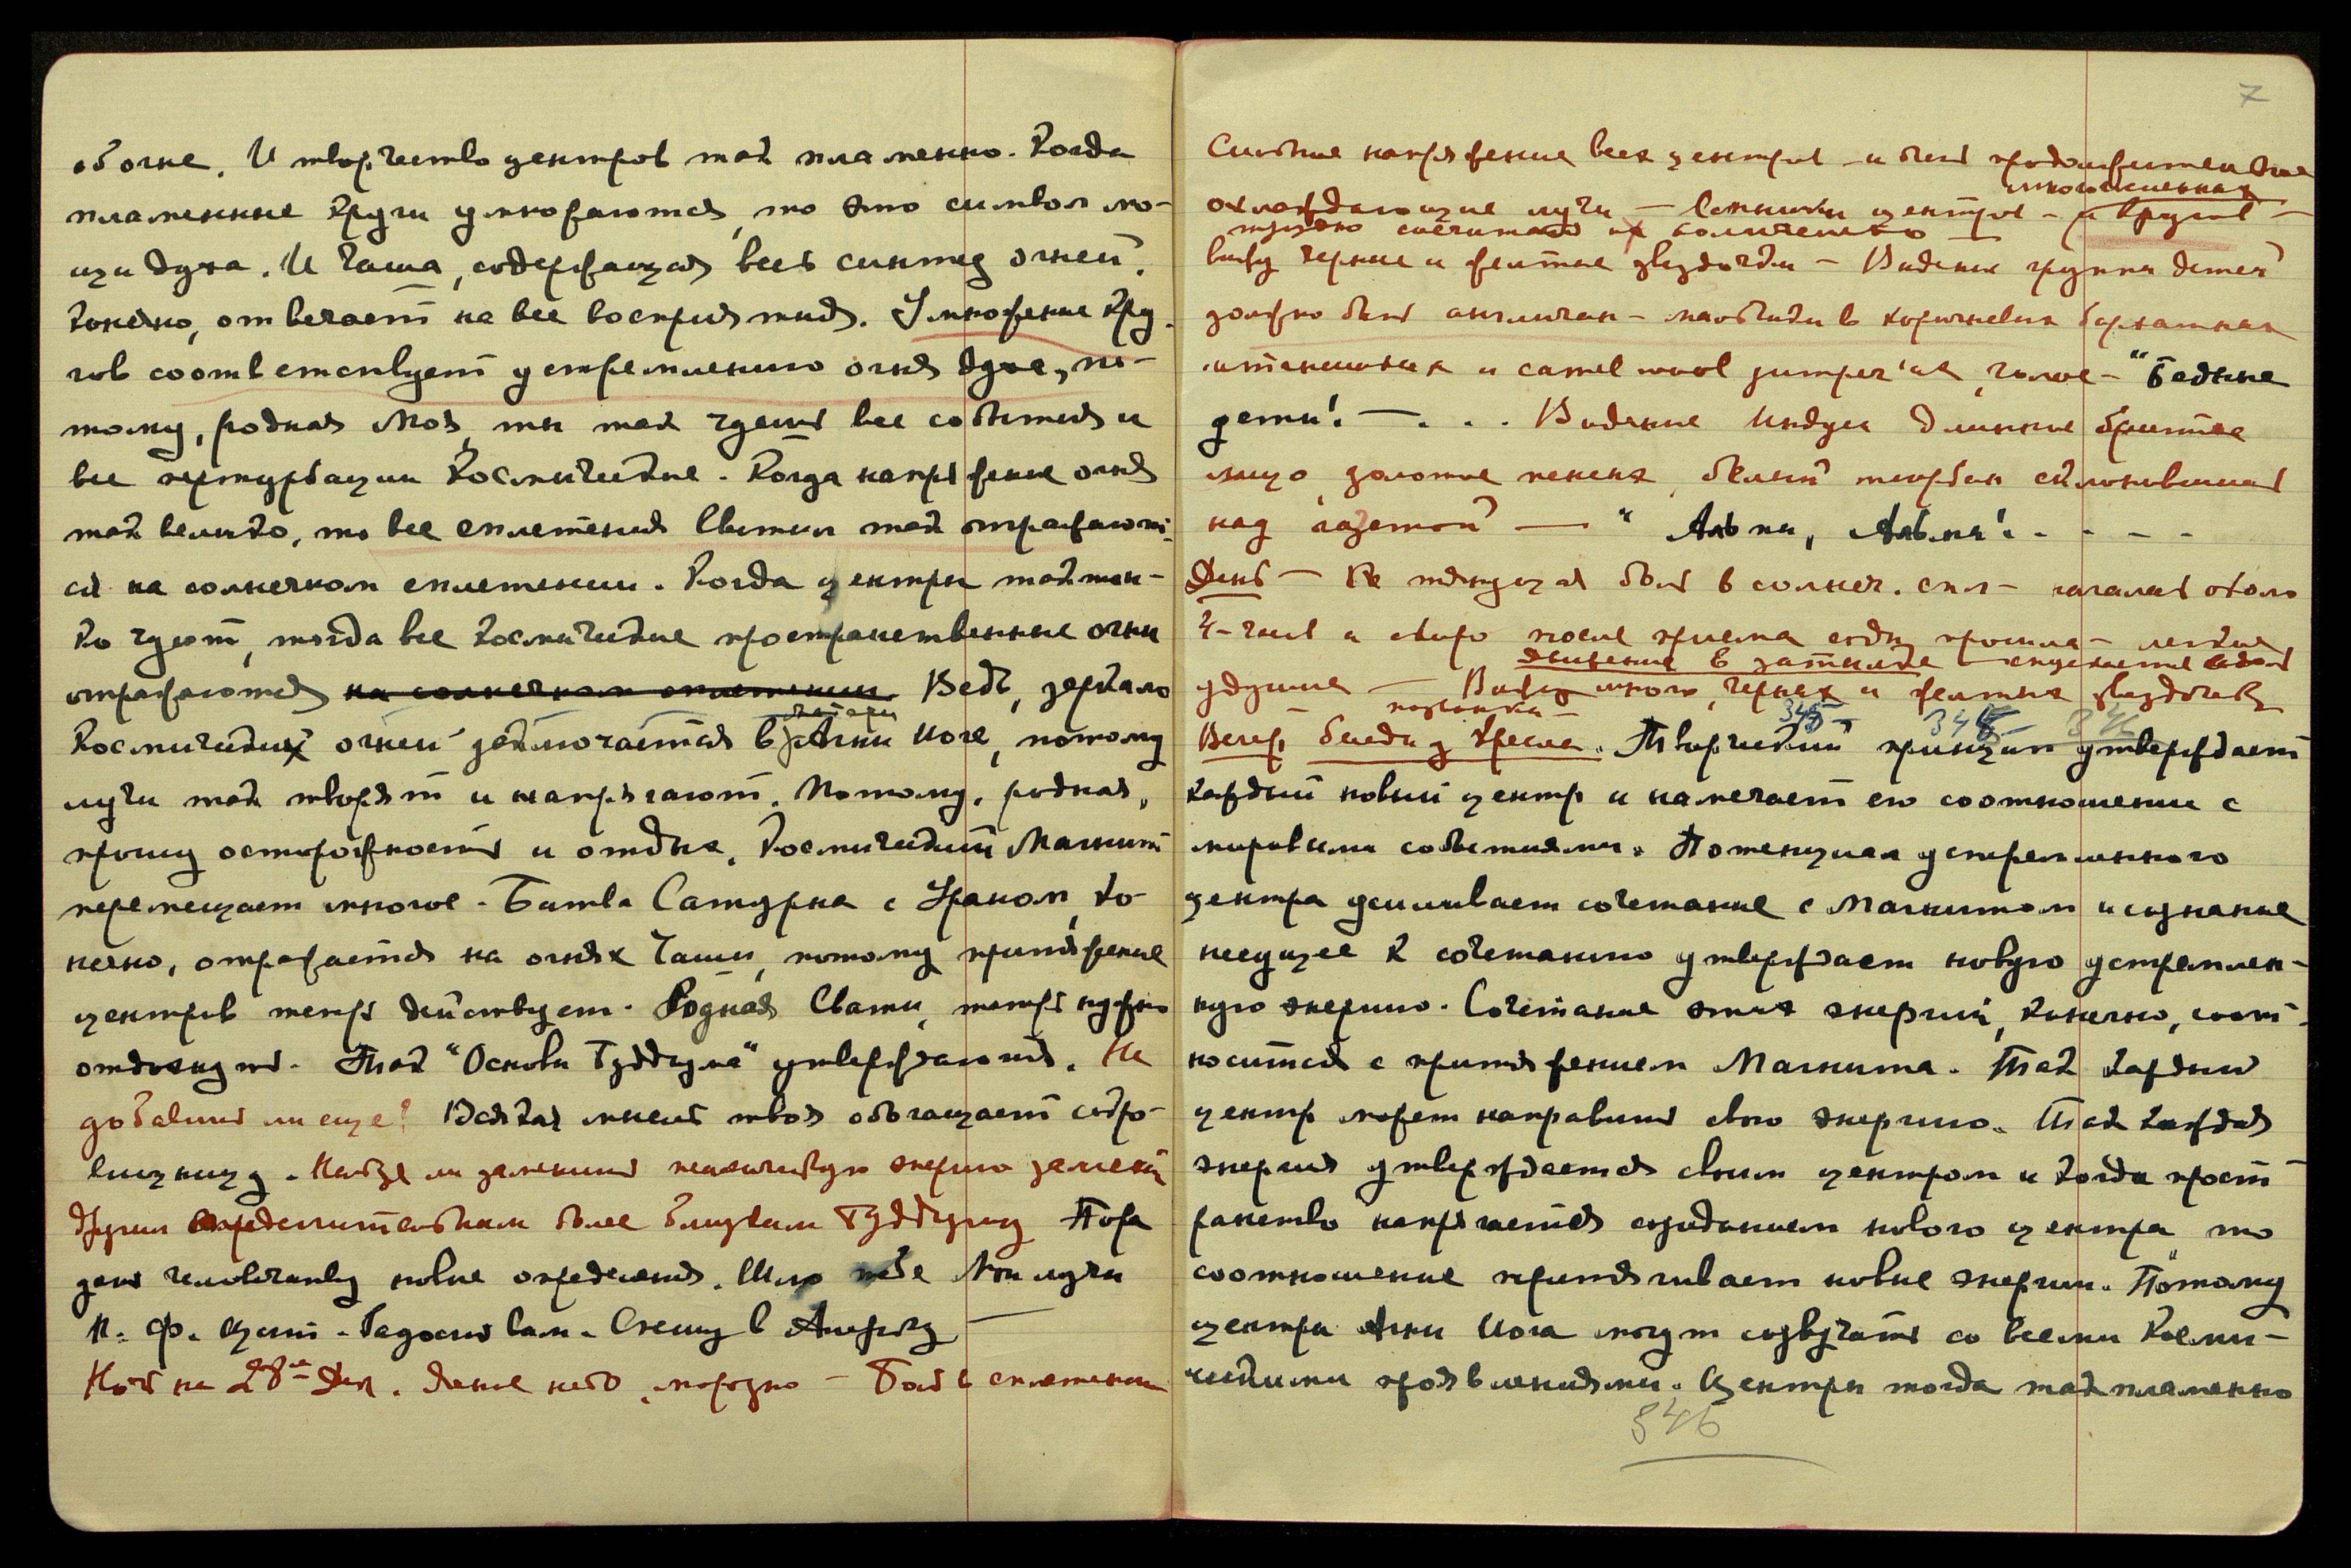 оболоке. И творчество центров так пламенно. Когда
пламенные круги умножаются, то это символ мо-
щи духа. И чаша, содержащая весь синтез огней,
конечно, отвечает на все восприятия. Умножение кру-
гов соответствует устремлению огня духа, по-
тому, родная моя, ты так чуешь все события и
все пертурбации Космические. Когда напряжение огня
так велико, то все сплетения Светил так отражают-
ся на солнечном сплетении. Когда центры так тон-
ко чуют, тогда все космические пространственные огни
отражаются на солнечном сплетении. Ведь, зеркало
матери
Космических огней заключается в Агни Йоге, потому
лучи так творят и напрягают. Потому, родная,
прошу осторожность и отдых. Космический Магнит
перемещает многое. Битва Сатурна с Ураном, ко-
нечно, отражается на огнях Чаши, потому притяжение
центров теперь действует. Родная Свати, теперь нужно
отдохнуть. Так "Основы Буддизма" утверждаются. Не
добавишь ли еще? Всякая мысль твоя обогащает сокро-
вищницу. Нельзя ли заменить психическую энергию
другим определительным более близким Буддизму Пора
дать человечеству новые определения. Шлю тебе Мои лучи
К. Ф. щит. Радость вам. Спешу в Америку —
Ночь на 28-ое Дек. Ясное небо, морозно — Боль в сплетении
7
Сильное напряжение всех центров и были продолжительные
многочисленных
охлаждающие лучи — вспышки центров — и кругов —
трудно сосчитать их количество —
вижу черные и желтые звездочки — Видение группы детей
должно быть англичан — мальчики в коричневых бархатных
штанишках и camel wool — "Бедные
дети! — . . . Видение Индуса длинное бритое
лицо, золотое пенсне, белый тюрбан склонившись
над газетой — "
День — боль в солнеч. спл — началась около
4-час и скоро после приема соды прошла — легкое
движение в затылке —
удушие — Вижу много черных и желтых звездочек
345 — 346 —
Вечер, беседа у кресла. Творческий принцип утверждает
каждый новый центр и намечает его соотношение с
мировыми событиями. Потенциал устремленного
центра усиливает сочетание с Магнитом и сознание
несущее к сочетанию утверждает новую устремлен-
ную энергию. Сочетание этих энергий, конечно, соот-
носится с притяжением Магнита. Так каждый
центр может направить свою энергию. Так каждая
энергия утверждается своим центром и когда прост-
ранство напрягается созиданием нового центра то
соотношение притягивает новые энергии. Потому
центры Агни Йога могут созвучать со всеми Косми-
ческими проявлениями. Центры тогда так пламенно
346